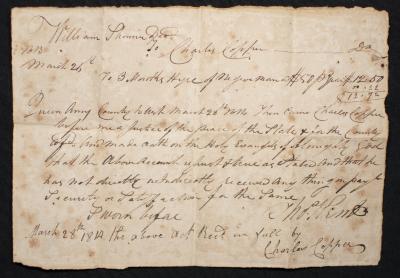 William Skinner Dr
To Charles Copper Dr
March 26th
To 3 Months Hire of Negro man a $50 pr year 12.50
Queen Anns County to wit March 28th 1814 Then Came Charles Copper
before me a Justice of the peace of the State & for the County
and made oath on the Holy Evangels of Almighty God
that the Above Account is Just & true as Stated and that he
has not directly or indirectly received Any thing in pay
Security or Satisfaction for the Same
Sworn before
March 28th 1814 the above Act Recd in full by
Charles Copper